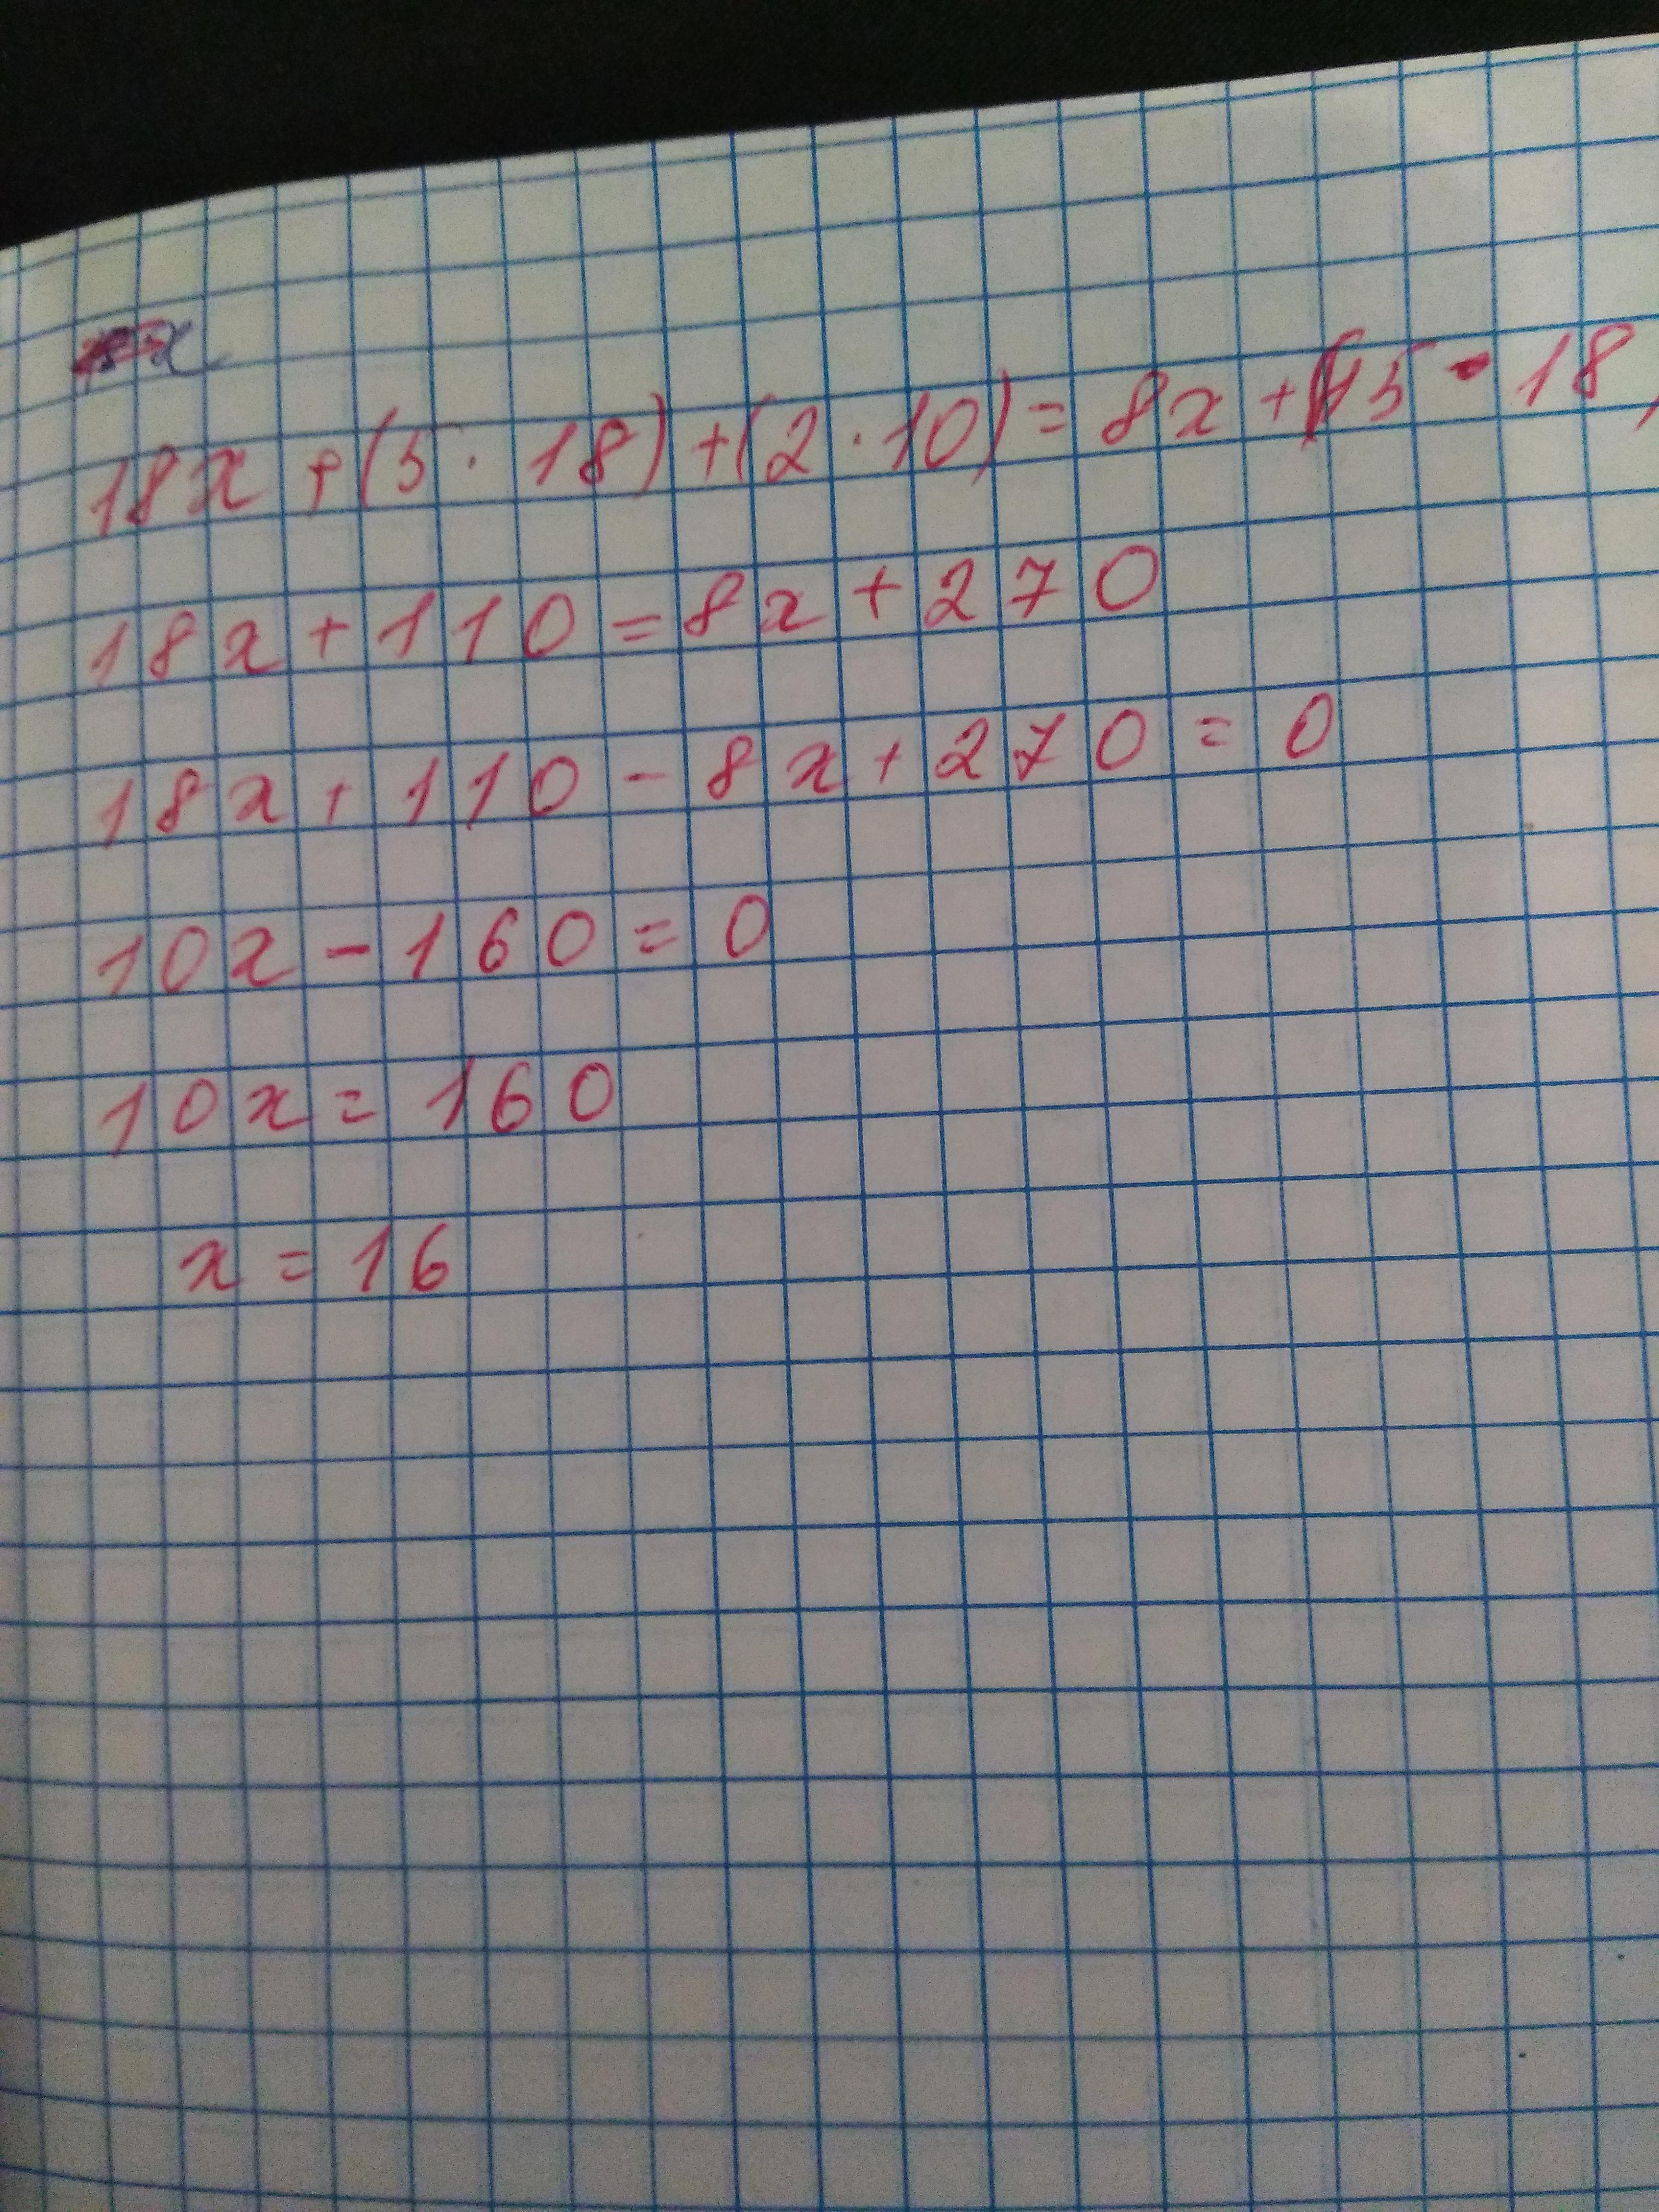 18x + (5 · 18) + (2 · 10) = 8x + 15 · 18
18x + 110 = 8x + 270
18x + 110 - 8x + 270 = 0
10x - 160 = 0
10x = 160
x = 16